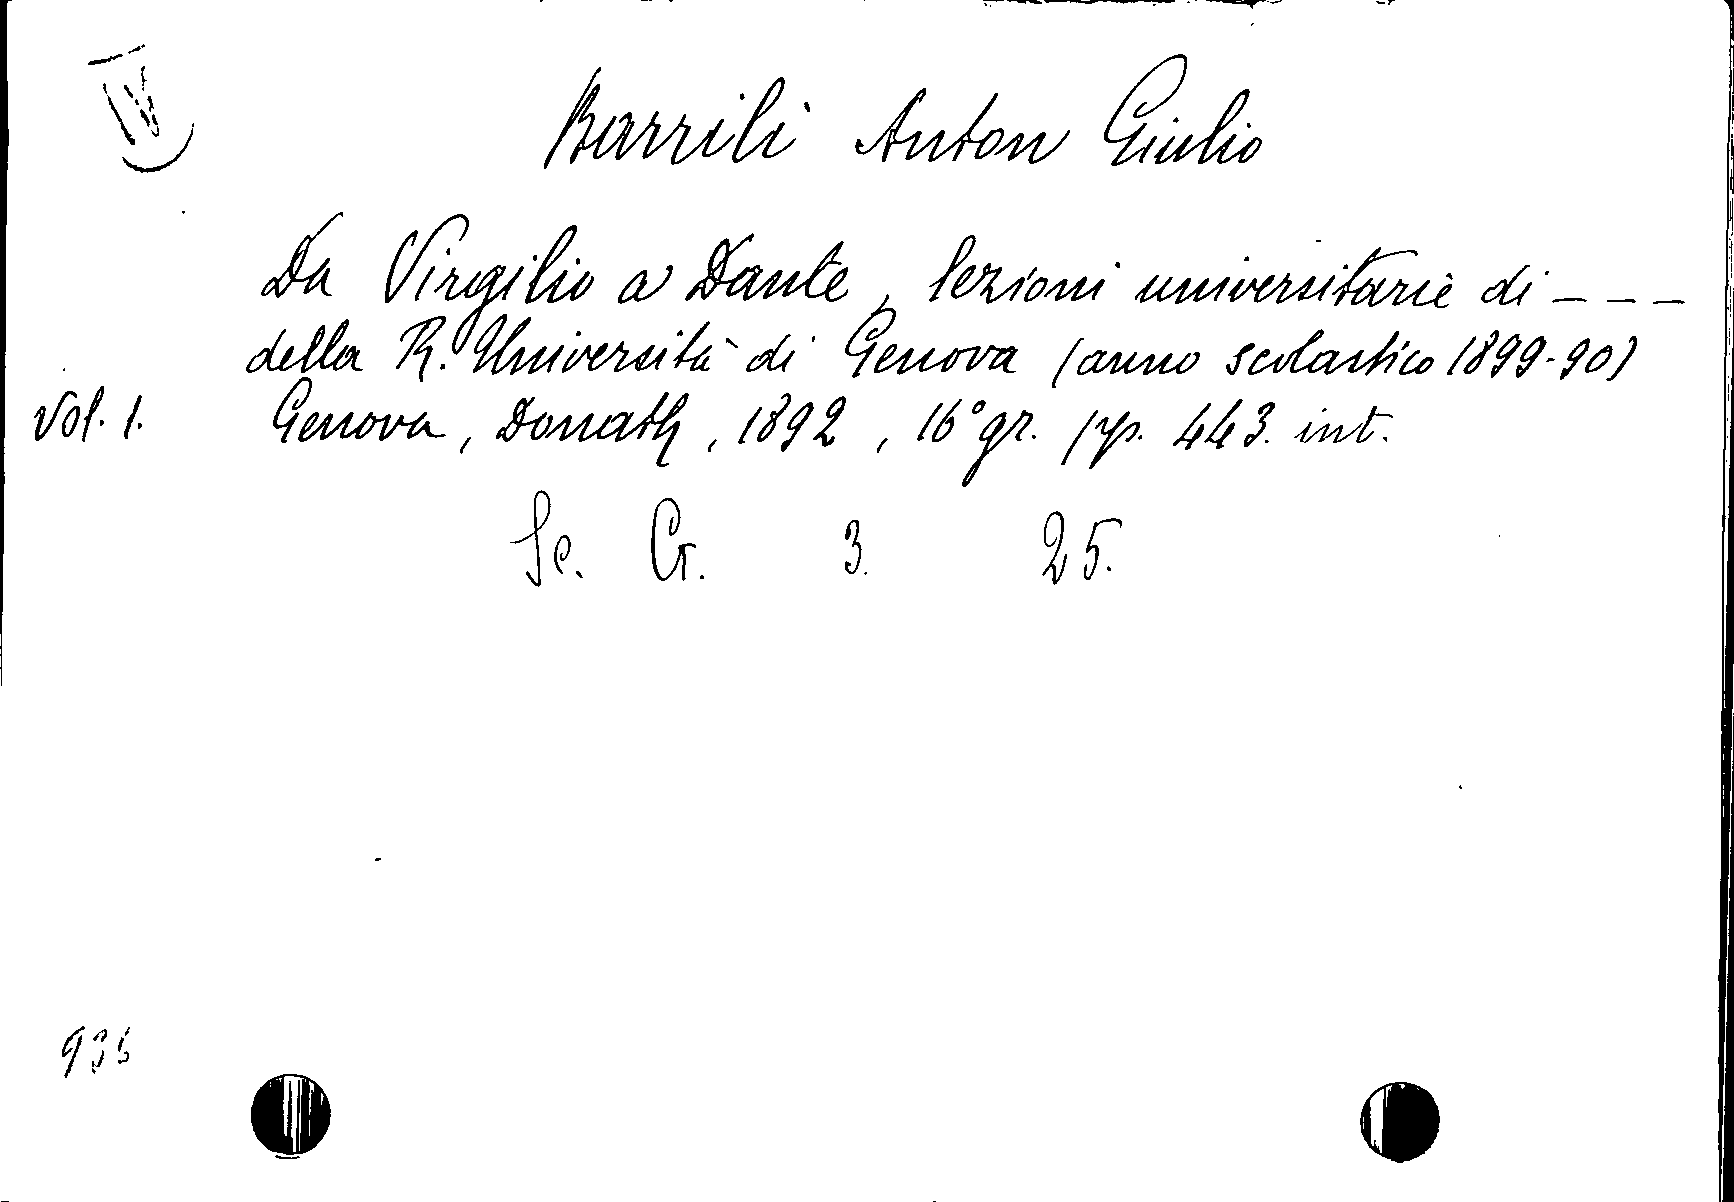 IV
Barrili Anton Giulio
Da Virgilio a Dante, lezioni universitarie di _ _ _
della R. Università di Genova (anno scolastico 1899-90)
Vol. 1. Genova, Donath, 1892, 16° gr. pp. 443. int.
Sc. G. 3. 25.